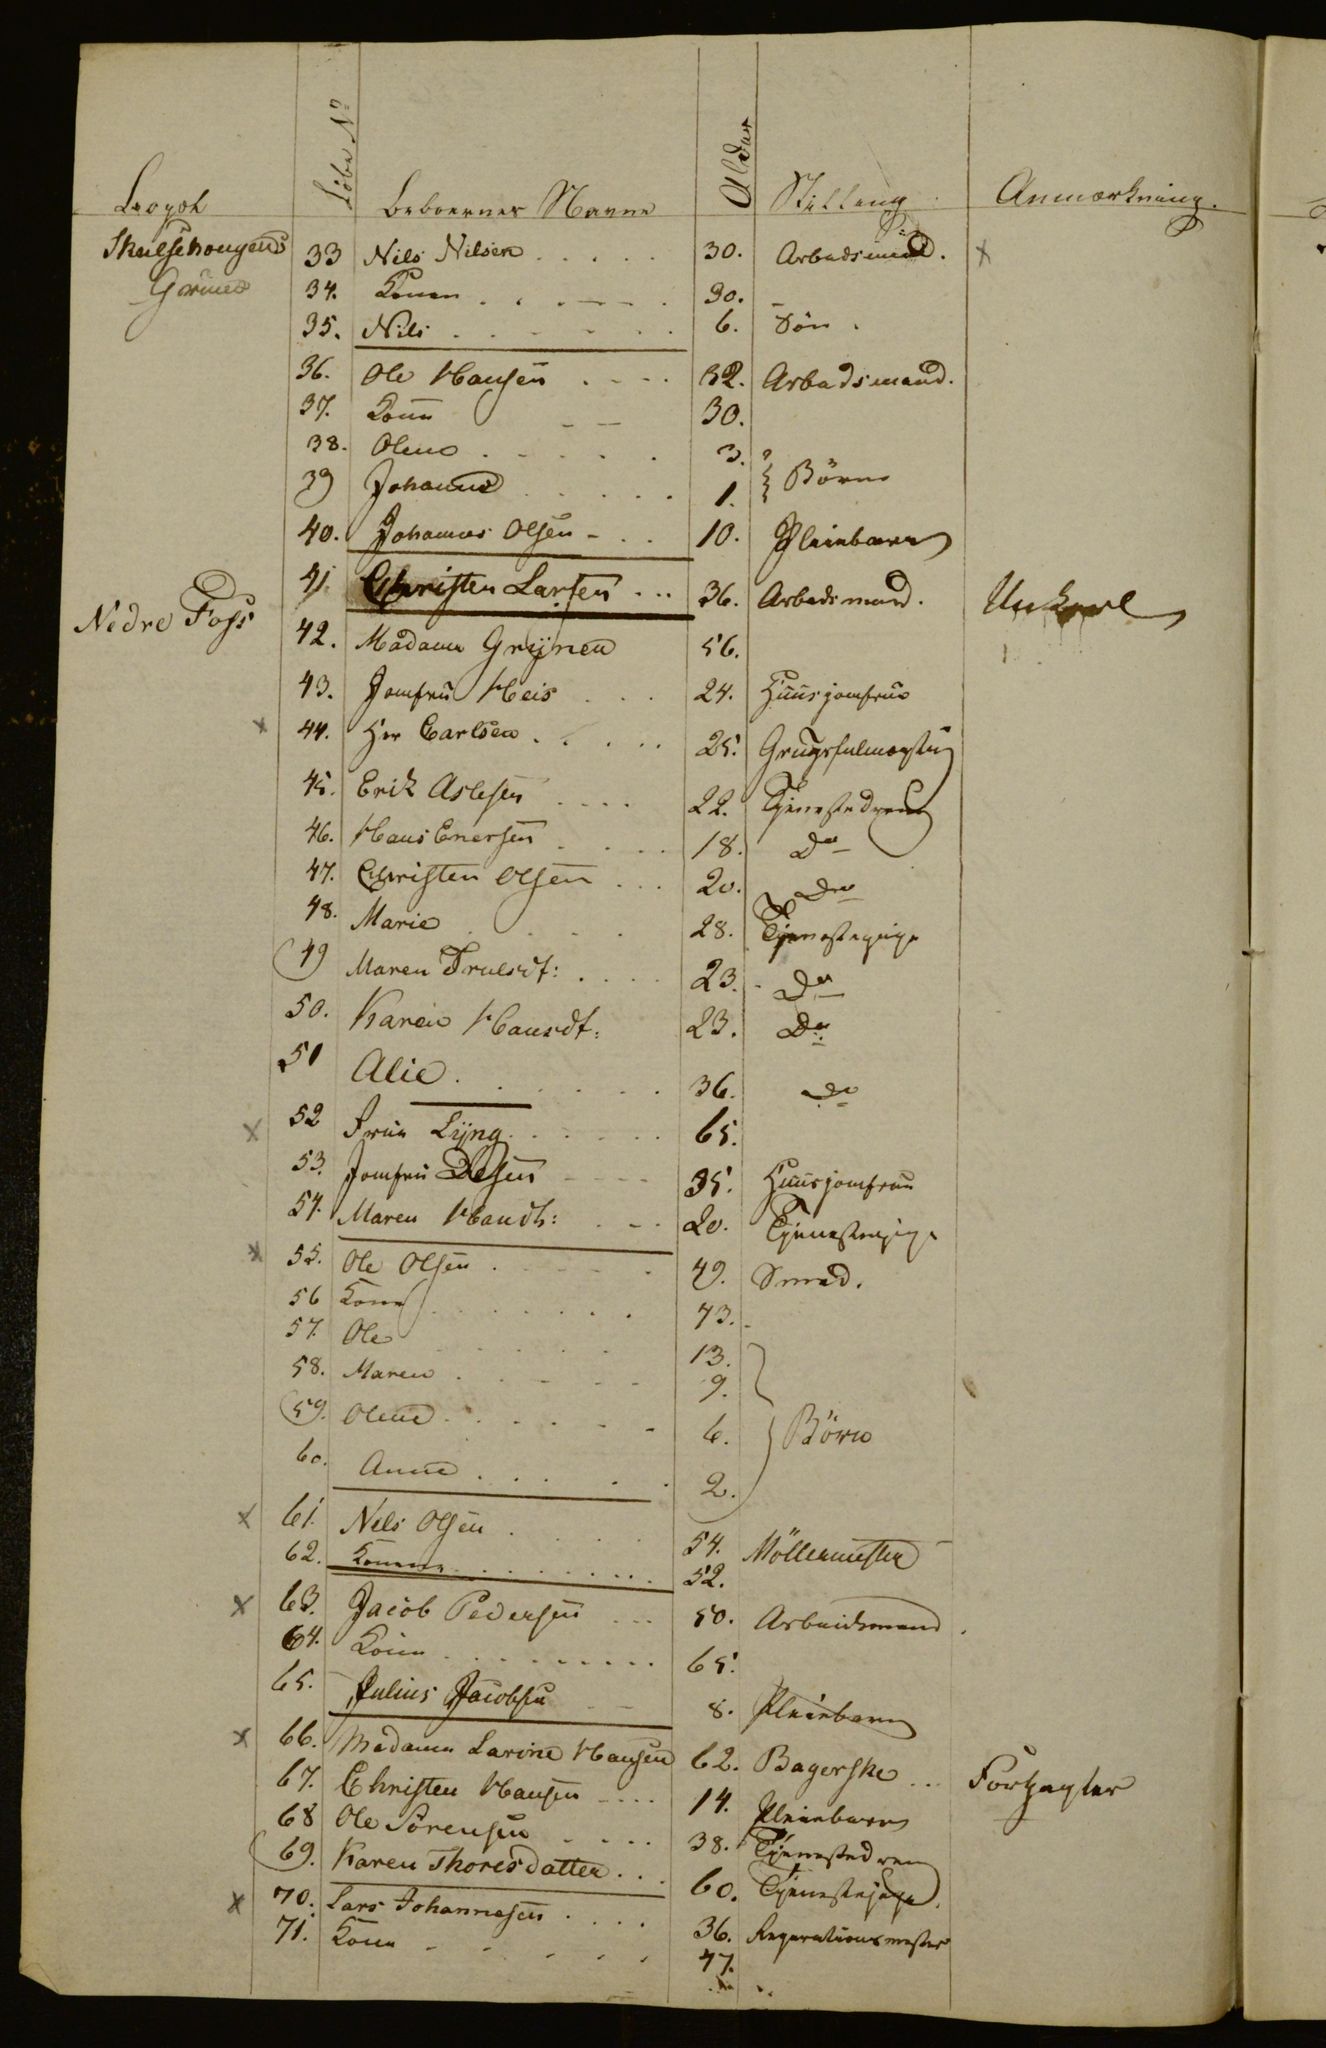 Løbe No Alder
Beboernes Navne Stilling Anmærkning.
33 Nils Nilsen 30. Arbedsmand. x
34. Konen 30. -
35. Nils 6. Søn.
36. Ole Hansen 32. Arbedsmand.
37. Konen 30.
38. Olene 3.
39 Johanne 1. } Børn
40. Johannes Olsen 10. Pleiebarn
41. Christen Larsen 36. Arbedsmand. Unkarl
Nedre Foss
42. Madame Grüner 56.
43. Jomfru Heis 24. Huusjomfrue
x 44. Hr Carlsen 25.
45. Erik Aslesen 22. Tjenestedreng
46. Hans Enersen 18. Do
47. Christen Olsen 20. do
48. Marie 28. Tjenestepige
49 Maren Trulsdt: 23. Do
50. Karen Hansdt: 23. Do
51 Alie 36. do
x 52 Frue Lÿng 65.
53. Jomfru 35. Huusjomfrue
54. Maren Handt: 20. Tjenestepige
x 55. Ole Olsen 49. Smed.
56 Kone 43.
57. Ole 13.
58. Maren 9.
59. Olene 6. } Børn
60. Anne 2.
x 61. Nels Olsen 54. Møllermester
62. Konen 52.
x 63. Jacob Pedersen 50. Arbeidsmand.
64. Kone 65.
65. Julius Jacobsen 8. Pleiebarn
x 66. Madame Larine Hansen 62. Bagerske Forpagter
67. Christen Hansen 14. Pleiebarn
68 Ole Sørensen 38. Tjenestedreng
69. Karen Thoresdatter 60. Tjenestepige.
x 70. Lars Johannesen 36. Reparationsmester
71. Kone 47.